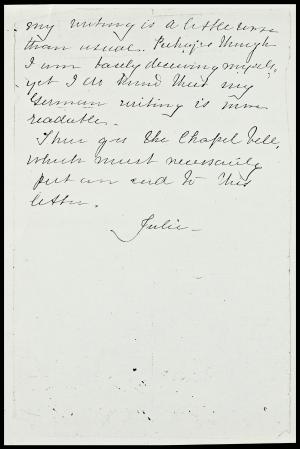 my writing is a little worse
than usual. Perhaps though
I am basely deceiving myself,
yet I do think that my
German writing is more
readable.
There goes the Chapel bell,
which must necessarily
put an end to this
letter.
Julie